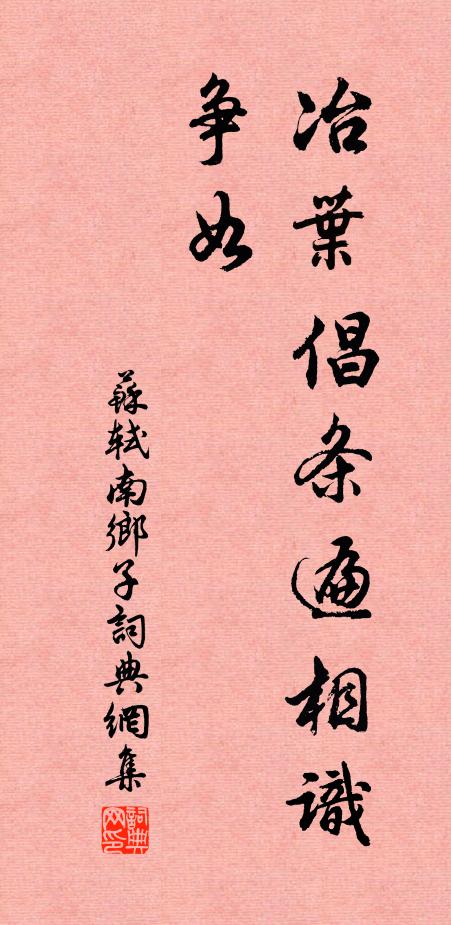 冶葉倡条遍相識
争如
蘇軾南鄉子詞典網集
詞典网印